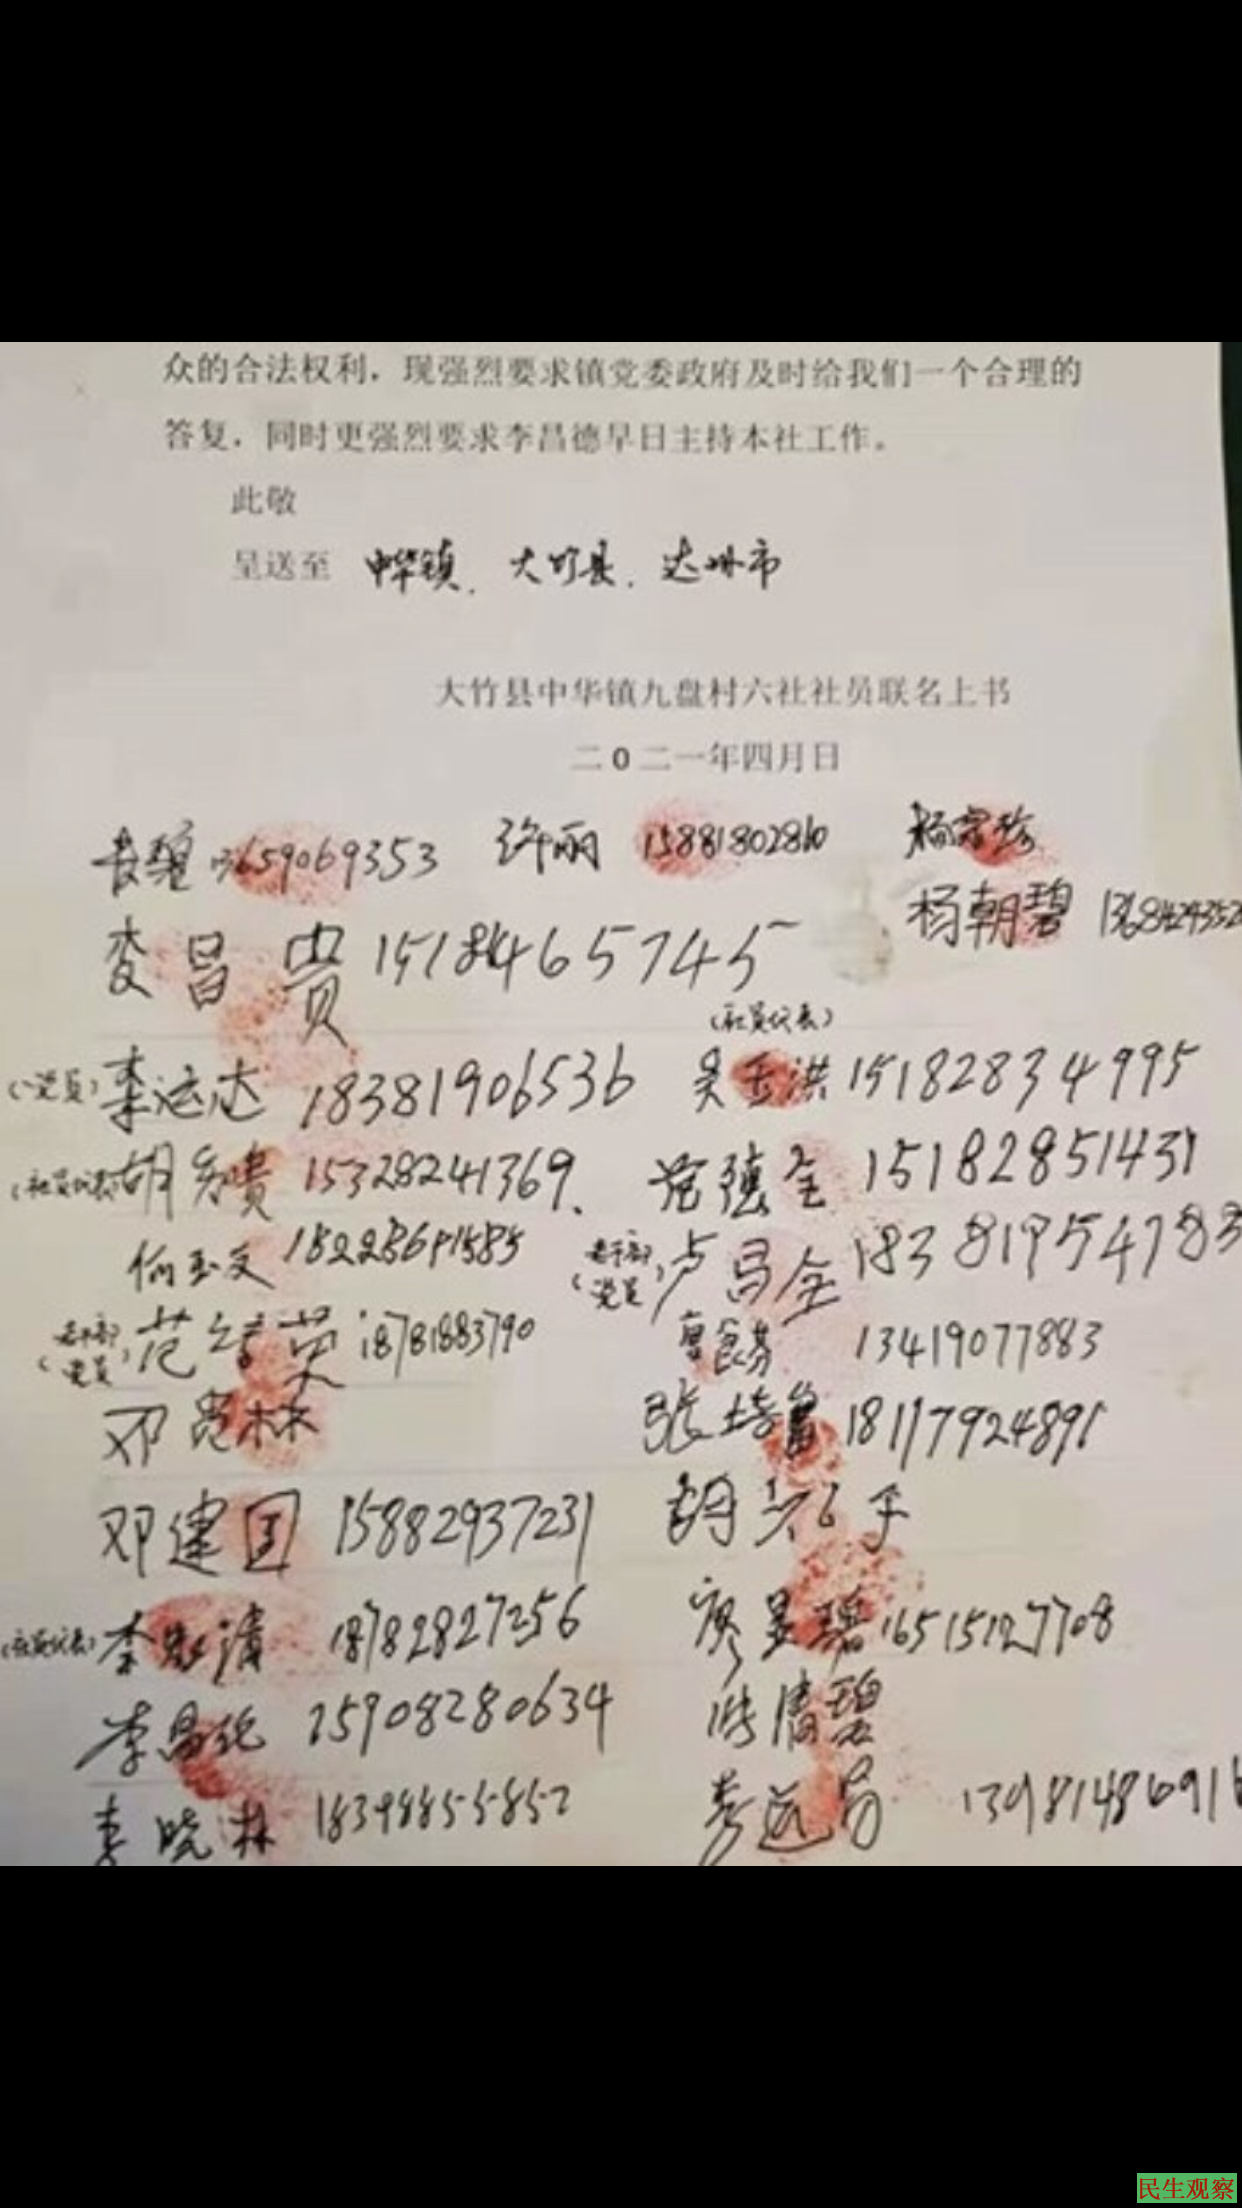 众的合法权利，现强烈要求镇党委政府及时给我们一个合理的
答复，同时更强烈要求李昌德早日主持本社工作。
此敬
呈送至 中华镇、大竹县、达州市
大竹县中华镇九盘村六社社员联名上书
二0二一年四月日
13659069353 许丽 15881802810 杨
李昌贵 15184465745 杨朝碧
(社员代表)
(党员) 李运达 18381906536 吴玉洪 15182834995
(社员代表) 胡 贵 15328241369. 范德全 15182851431
何玉文 老干部 卢昌全
(党员)
老干部 范 英 18781883790 13419077883
(党员)
邓 林 张培富
邓建国 15882937231 胡
(社员代表) 李 清 18782827256 廖 碧 16515127708
李昌 15908280634 清碧
李晓林
民生观察